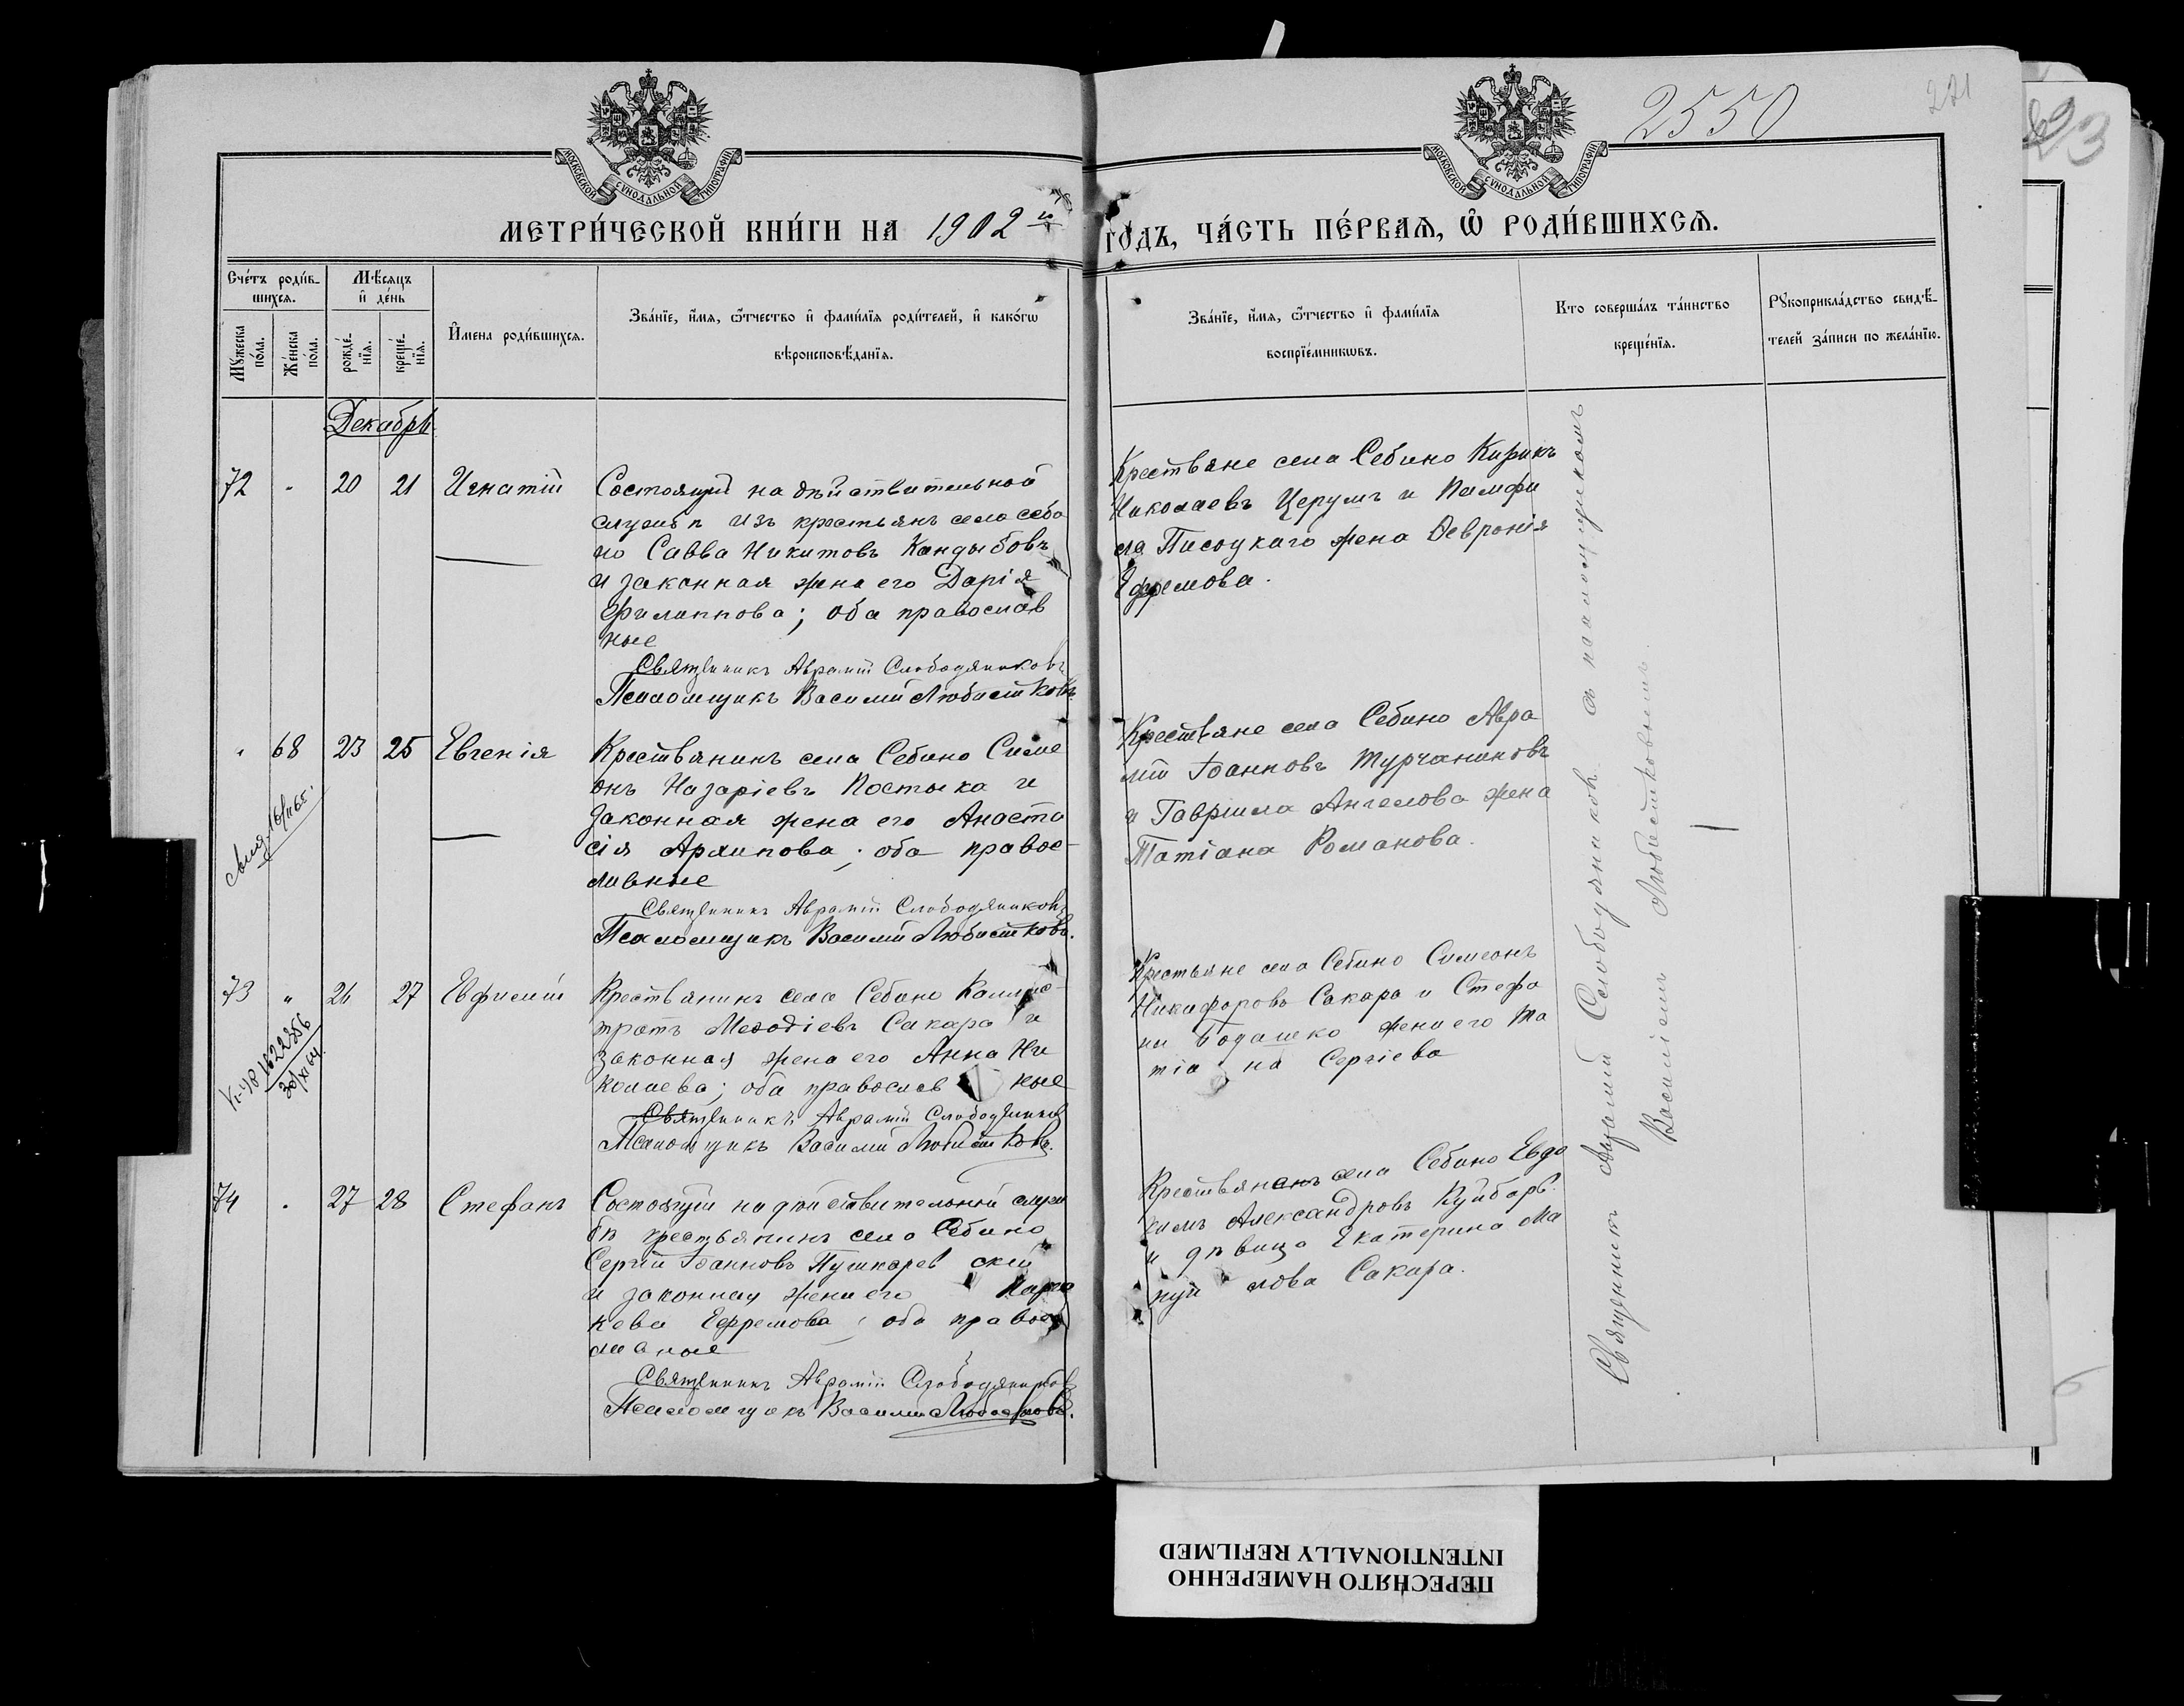 2550
221
23
МОСКОВСКОЙ СѴНОДАЛЬНОЙ ТИПОГРАФІИ
МОСКОВСКОЙ СѴНОДАЛЬНОЙ ТИПОГРАФІИ
МЕТРИ́ЧЕСКОЙ КНИ́ГИ НА 1902 й ГО́ДЪ, ЧА́СТЬ ПЕ́РВАѦ, Ѡ РОДИ́ВШИХСѦ.
Сче́тъ роди́в-
шихсѧ.
Мѣ́сѧцъ
и҆ де́нь
Мꙋ́жеска по́ла.
Же́нска по́ла.
рожде́-нїѧ.
креще́-нїѧ.
И҆мена роди́вшихсѧ.
Зва́нїе, и҆́мѧ, ѻ҆́тчество и҆ фами́лїѧ роди́телей, и҆ како́гѡ
вѣроисповѣ́данїѧ.
Зва́нїе, и҆́мѧ, ѻ҆́тчество и҆ фами́лїѧ
воспрїе́мникѡвъ.
Кто соверша́лъ та́инство
креще́нїѧ.
Рꙋкоприкла́дство свидѣ́-
телей за́писи по жела́нїю.
Декабрь
72 - 20 21 Игнатій
Состоящій на дѣйствительной
службѣ изъ крестьянъ села Себи
но Савва Никитовъ Кандыбовъ
и законная жена его Дарія
Филиппова; оба православ
ные
Священникъ Аврамій Слободяниковъ
Псаломщикъ Василій Любистковъ
Крестьяне села Себино Кирикъ
Николаевъ Церулъ и Памфи
ла Писоцкаго жена Февронія
Ефремова.
" 68 23 25 Евгенія
Крестьянинъ села Себино Симе
онъ Назаріевъ Постыка и
законная жена его Анаста
сія Архипова; оба правос-
лавные
Священникъ Аврамій Слободяниковъ
Псаломщикъ Василій Любистковъ.
Крестьяне села Себино Авра
мій Іоанновъ Турчаниновъ
и Гавріила Ангелова жена
Татіана Романова.
73 " 26 27 Евфимій
Крестьянинъ села Себино Каллис-
тратъ Меѳодіевъ Сакара и
законная жена его Анна Ни
колаева; оба православ ные
Священникъ Аврамій Слободяниковъ
Псаломщикъ Василій Любистковъ.
Крестьяне села Себино Симеонъ
Никифоровъ Сакара и Стефа
на жена его Та
тіа на Сергіева
74 - 27 28 Стефанъ
Состоящій на дѣйствительной служ
бѣ крестьянинъ села Себино
Сергій Іоанновъ Пушкарев скій
и законная жена его Парас
кева Ефремова; оба правос
лавные
Священникъ Аврамій Слободяниковъ
Псаломщикъ Василій Любистковъ.
Крестьянинъ села Себино Евдо
кимъ Александровъ Куйбарь
и дѣвица Екатерина Ма
нуи лова Сакара.
Священникъ Аврамій Слободяниковъ съ псаломщикомъ
Василіемъ Любистковымъ.
ПЕРЕСНЯТО НАМЕРЕННО
INTENTIONALLY REFILMED